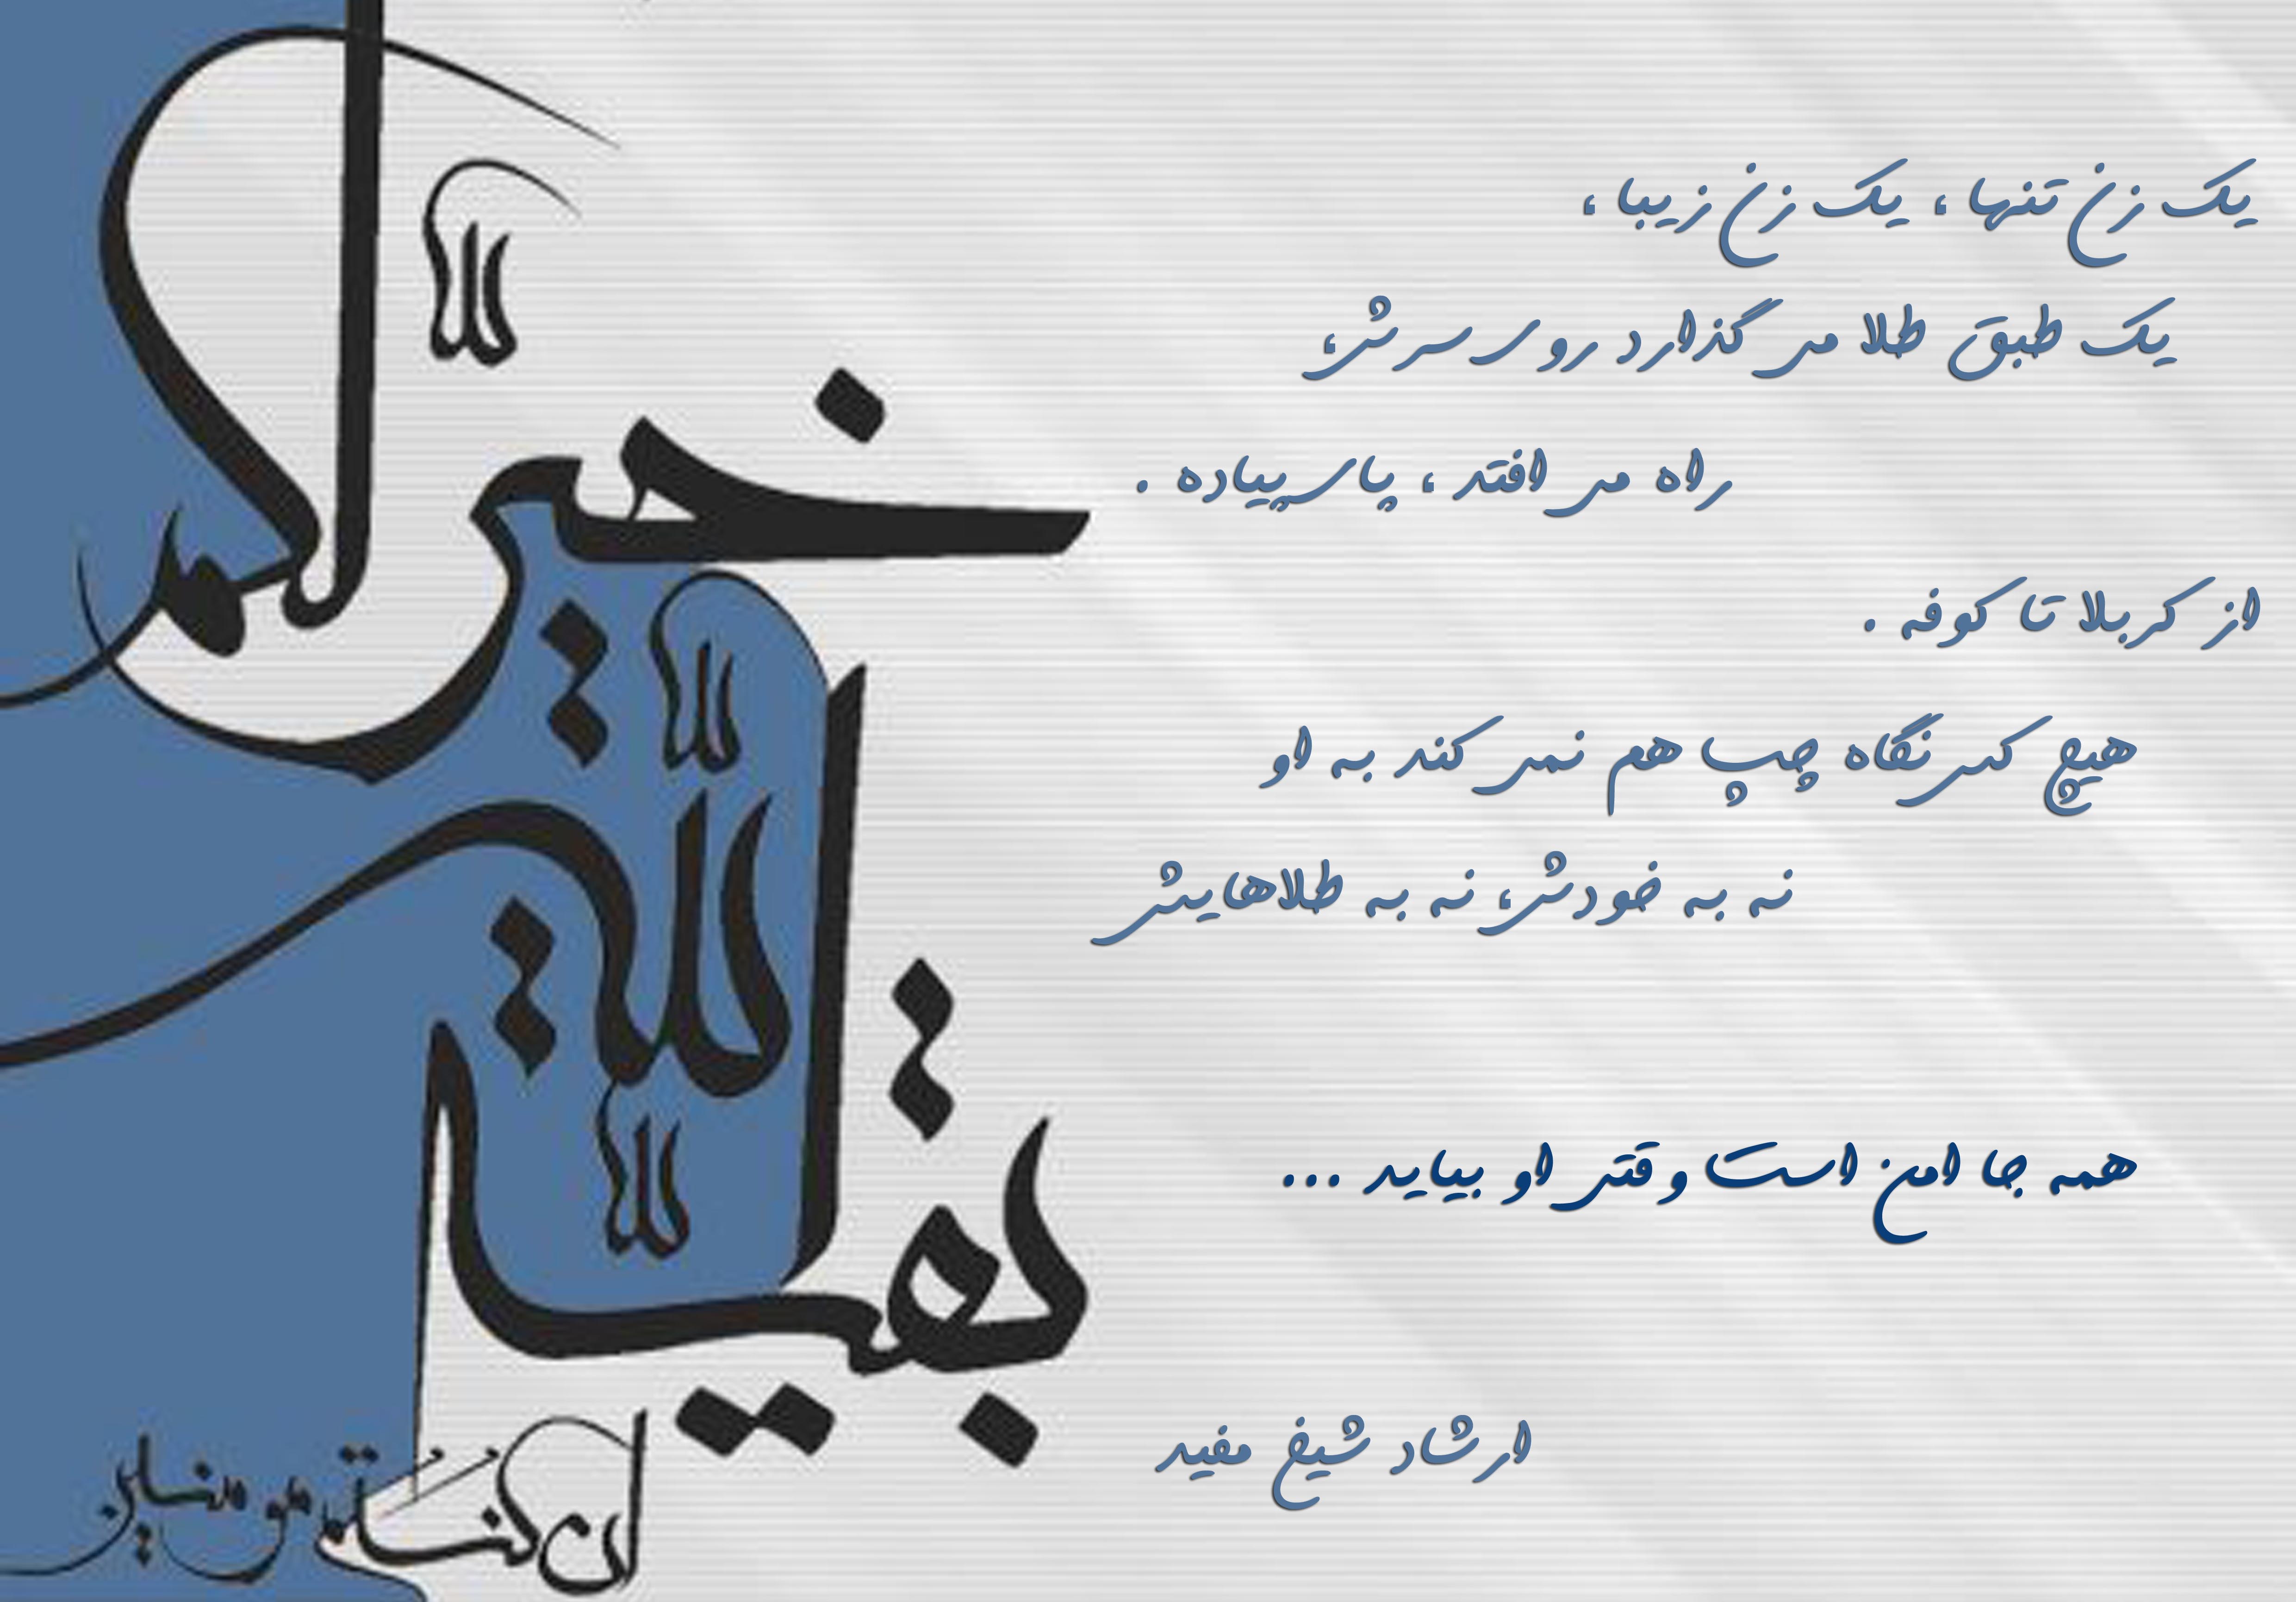 یک زن تنها، یک زن زیبا،
یک طبق طلا می گذارد روی سرش،
راه می افتد، پای پیاده.
از کربلا تا کوفه.
هیچ کس نگاه چپ هم نمی کند به او
نه به خودش، نه به طلاهایش
همه جا امن است وقتی او بیاید ...
ارشاد شیخ مفید
بقیة الله
خیر لکم
ان کنتم مومنین